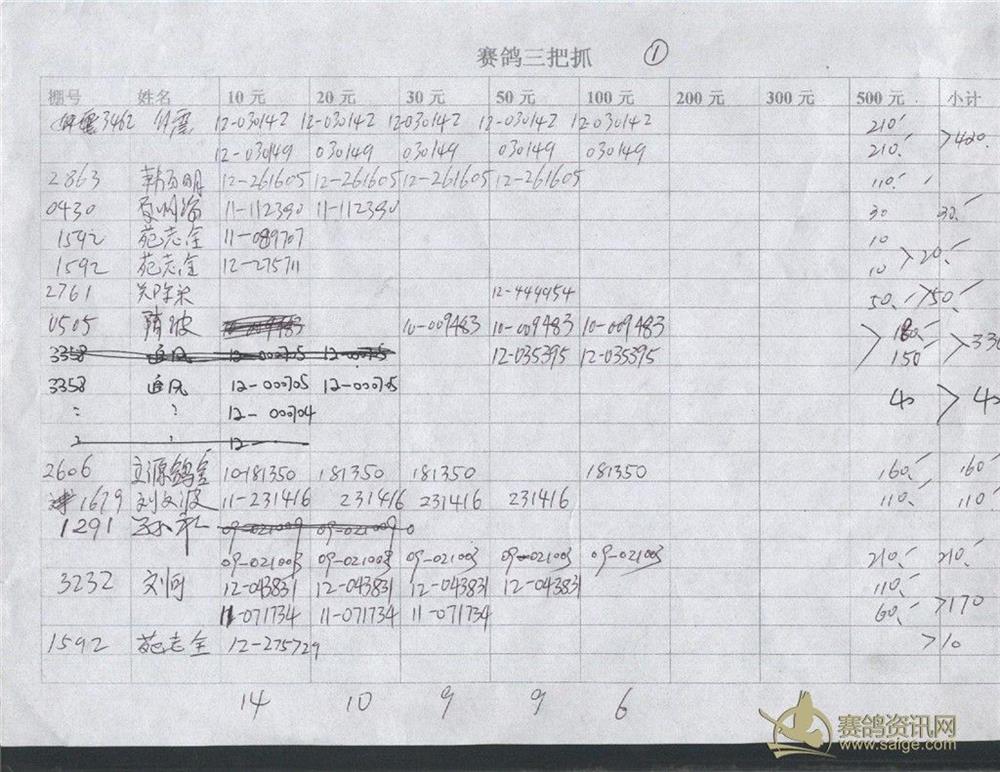 赛鸽三把抓 ①
棚号 姓名 10元 20元 30元 50元 100元 200元 300元 500元. 小计
3462 12-030142 12-030142 12-030142 12-030142 12-030142 210.
12-030149 030149 030149 030149 030149 210. >420.
2863 韩百明 12-261605 12-261605 12-261605 12-261605 110.
0430 11-112390 11-112390 30 30.
1592 苑志全 11-089707 10
1592 苑志全 12-275711 10 >20.
2761 12-444954 50. >50.
0505 隋波 10-009483 10-009483 10-009483 180.
3358 追风 12-00705 12-00705 12-035395 12-035395 150 >330
3358 追风 12-00705 12-00705 40 >40
: ? 12-00704
12-
2606 立源鸽舍 10-181350 181350 181350 181350 160. 160.
1679 刘文波 11-231416 231416 231416 231416 110. 110.
1291 09-021009 09-021009 0
09-021003 09-021003 09-021003 09-021003 09-021003 210. 210.
3232 刘问 12-043831 12-043831 12-043831 12-043831 110.
11-071734 11-071734 11-071734 60. >170
1592 苑志全 12-275729 >10
14 10 9 9 6
赛鸽资讯网
www.saige.com